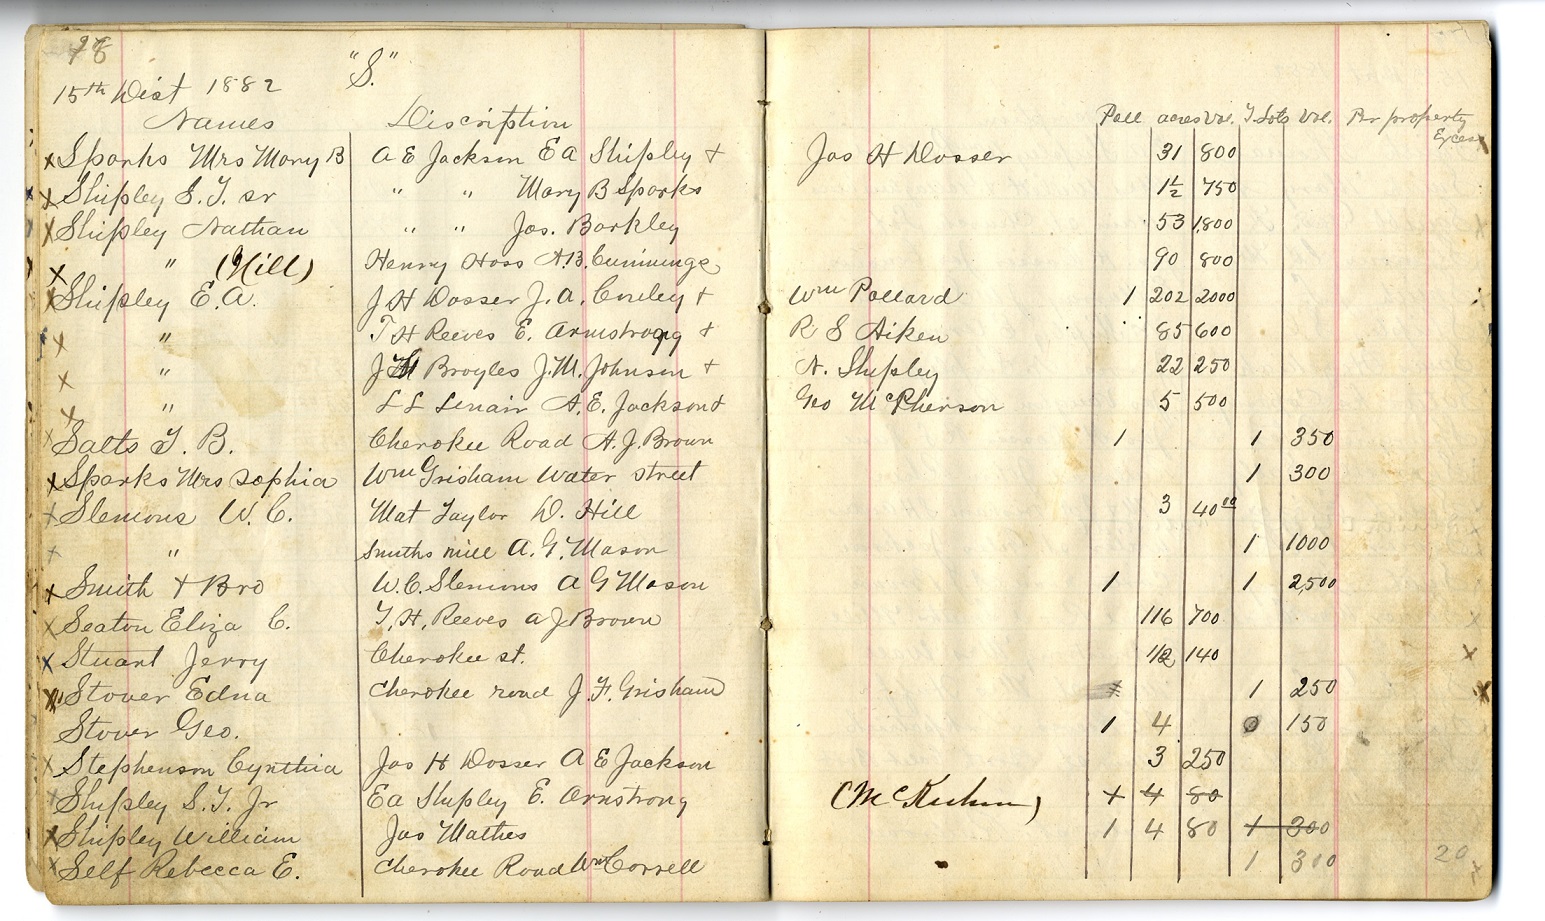 28
"S."
15th Dist 1882
Names Discription Poll acres Val. T Lots Val. Per property Excess
x Sparks Mrs Mary B A E Jackson E A Shipley + Jas H Dosser 31 800
x Shipley S. T. sr " " Mary B Sparks 1½ 750
x Shipley Nathan " " Jos. Barkley 53 1,800
x " (Hill) Henry Hoss A. B. Cummings 90 800
x Shipley E. A. J H Dosser J. A. Conley + Wm Pollard 1 202 2000
x " T H Reeves E. Armstrong + R S Aiken 85 600
x " J M Broyles J. M. Johnson + N. Shipley 22 250
x " L L Lenair A. E. Jackson + Geo McPherson 5 500
x Salts T. B. Cherokee Road A. J. Brown 1 1 350
x Sparks Mrs Sophia Wm Grisham Water street 1 300
x Slemons W. C. Mat Taylor D. Hill 3 40 00
x " Smiths mill A. G. Mason 1 1000
x Smith & Bro W. C. Slemons A G Mason 1 1 2,500
x Seaton Eliza C. T. H. Reeves A J Brown 116 700
x Stuart Jerry Cherokee st. 1/2 140 x
x Stover Edna Cherokee road J. F. Grisham 1 250 x
Stover Geo. 1 4 0 150
x Stephenson Cynthia Jas H Dosser A E Jackson 3 250
x Shipley S. T. Jr E a Shipley E. Armstrong (McKeehan) + 4 80
x Shipley William Jas Mathes 1 4 80 1 300
x Self Rebecca E. Cherokee Road Wm Correll 1 300 20 x